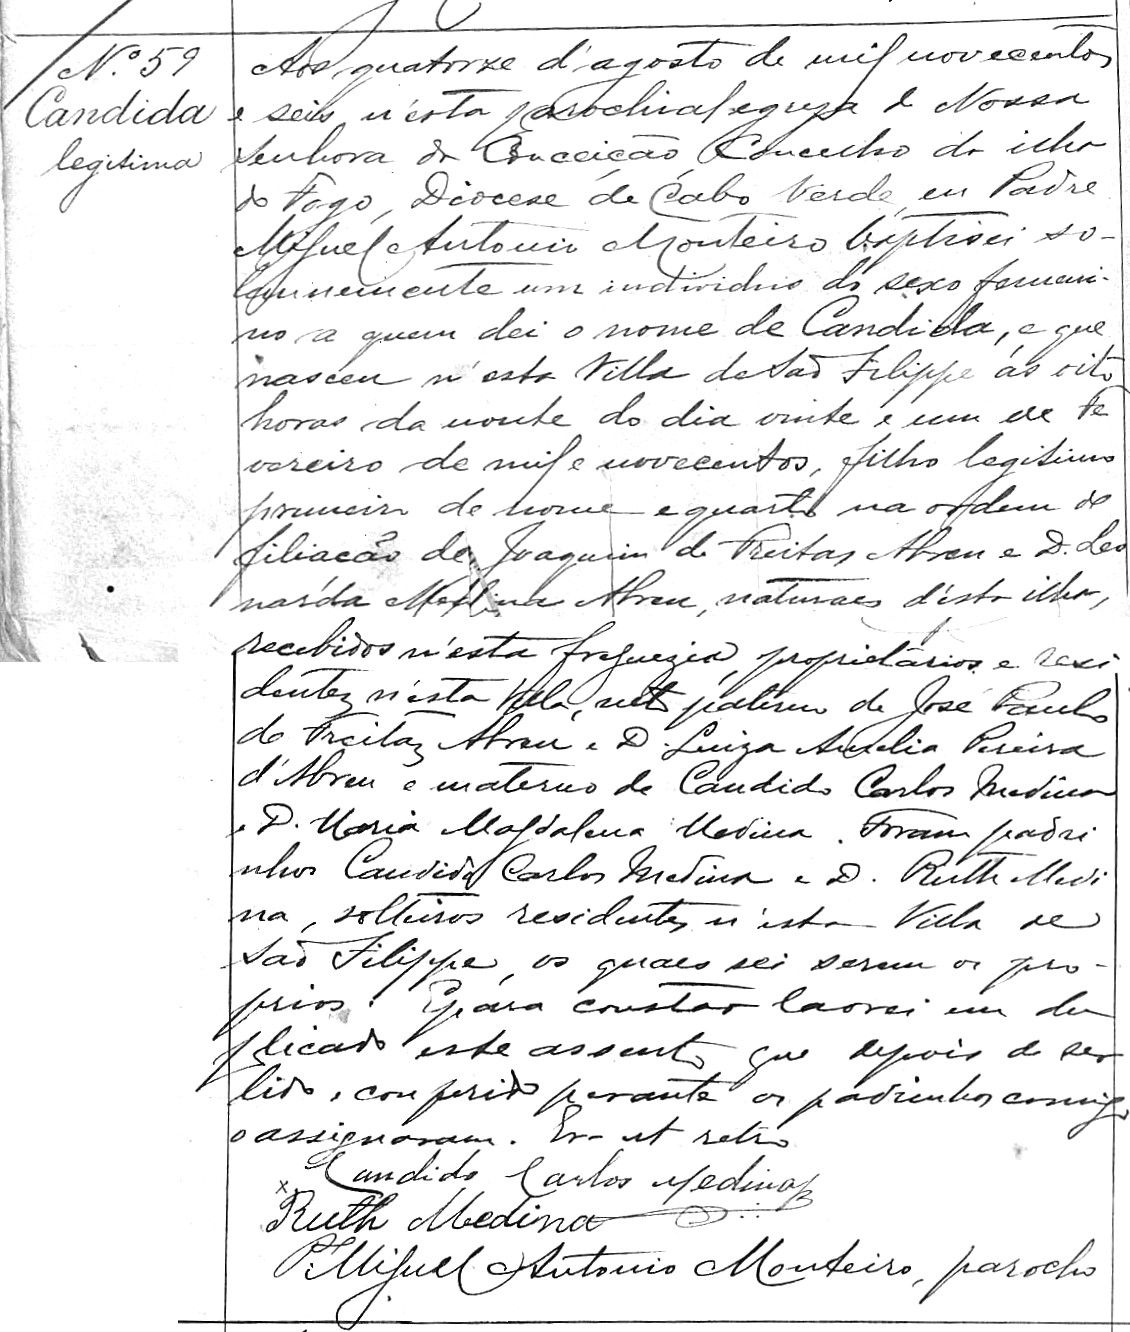 N.º 59
Candida
legitima
Aos quatorze d'agosto de mil novecentos
e seis n'esta parochial egreja de Nossa
Senhora da Conceição, Concelho da ilha
do Fogo, Diocese de Cabo Verde, eu Padre
Miguel Antonio Monteiro baptisei so-
lemnemente um individuo do sexo femeni-
no a quem dei o nome de Candida, e que
nasceu n'esta Villa de São Filippe ás oito
horas da noute do dia vinte e um de Fe
vereiro de mil e novecentos, filho legitimo
primeiro de nome e quarto na ordem de
filiacão de Joaquim de Freitas Abreu e D. Leo
narda Medina Abreu, naturaes d'esta ilha,
recebidos n'esta freguezia, proprietarios e resi
dentes n'esta Villa, neto paterno de José Paulo
de Freitas Abreu e D. Luiza Amelia Pereira
d'Abreu e materno de Candido Carlos Medina
e D. Maria Magdalena Medina. Foram padri
nhos Candido Carlos Medina e D. Ruth Medi
na, solteiros residentes n'esta Villa de
São Filippe, os quaes sei serem os pro-
prios. E para constar lavrei em du
plicado este assento que depois de ser
lido e conferido perante os padrinhos comigo
o assignaram. Era ut retro
Candido Carlos Medina
x Ruth Medina
P. Miguel Antonio Monteiro, parocho